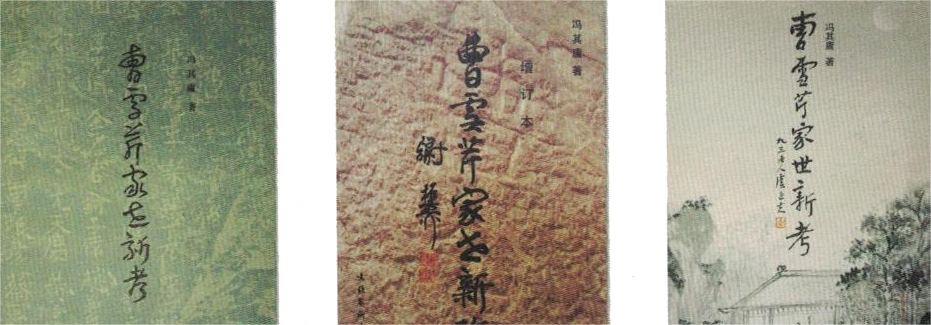 冯其庸 著
曹雪芹家世新考
冯其庸 著
增订本
曹雪芹家世新
冯其庸 著
曹雪芹家世新考
九三老人虞逸夫